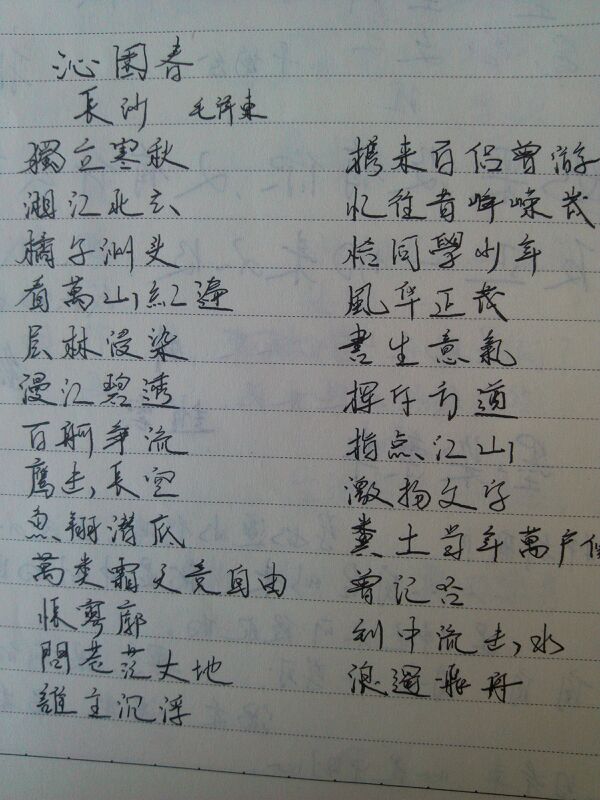 沁园春
長沙 毛泽東
獨立寒秋
湘江北去
橘子洲头
看萬山紅遍
层林浸染
漫江碧透
百舸争流
鹰击長空
鱼翔潜底
萬类霜天竞自由
悵寥廓
問苍茫大地
誰主沉浮
携来百侣曾游
忆往昔峥嵘歲
恰同學少年
風华正茂
書生意氣
挥斥方遒
指点江山
激扬文字
糞土当年萬户侯
曾记否
到中流击水
浪遏飛舟